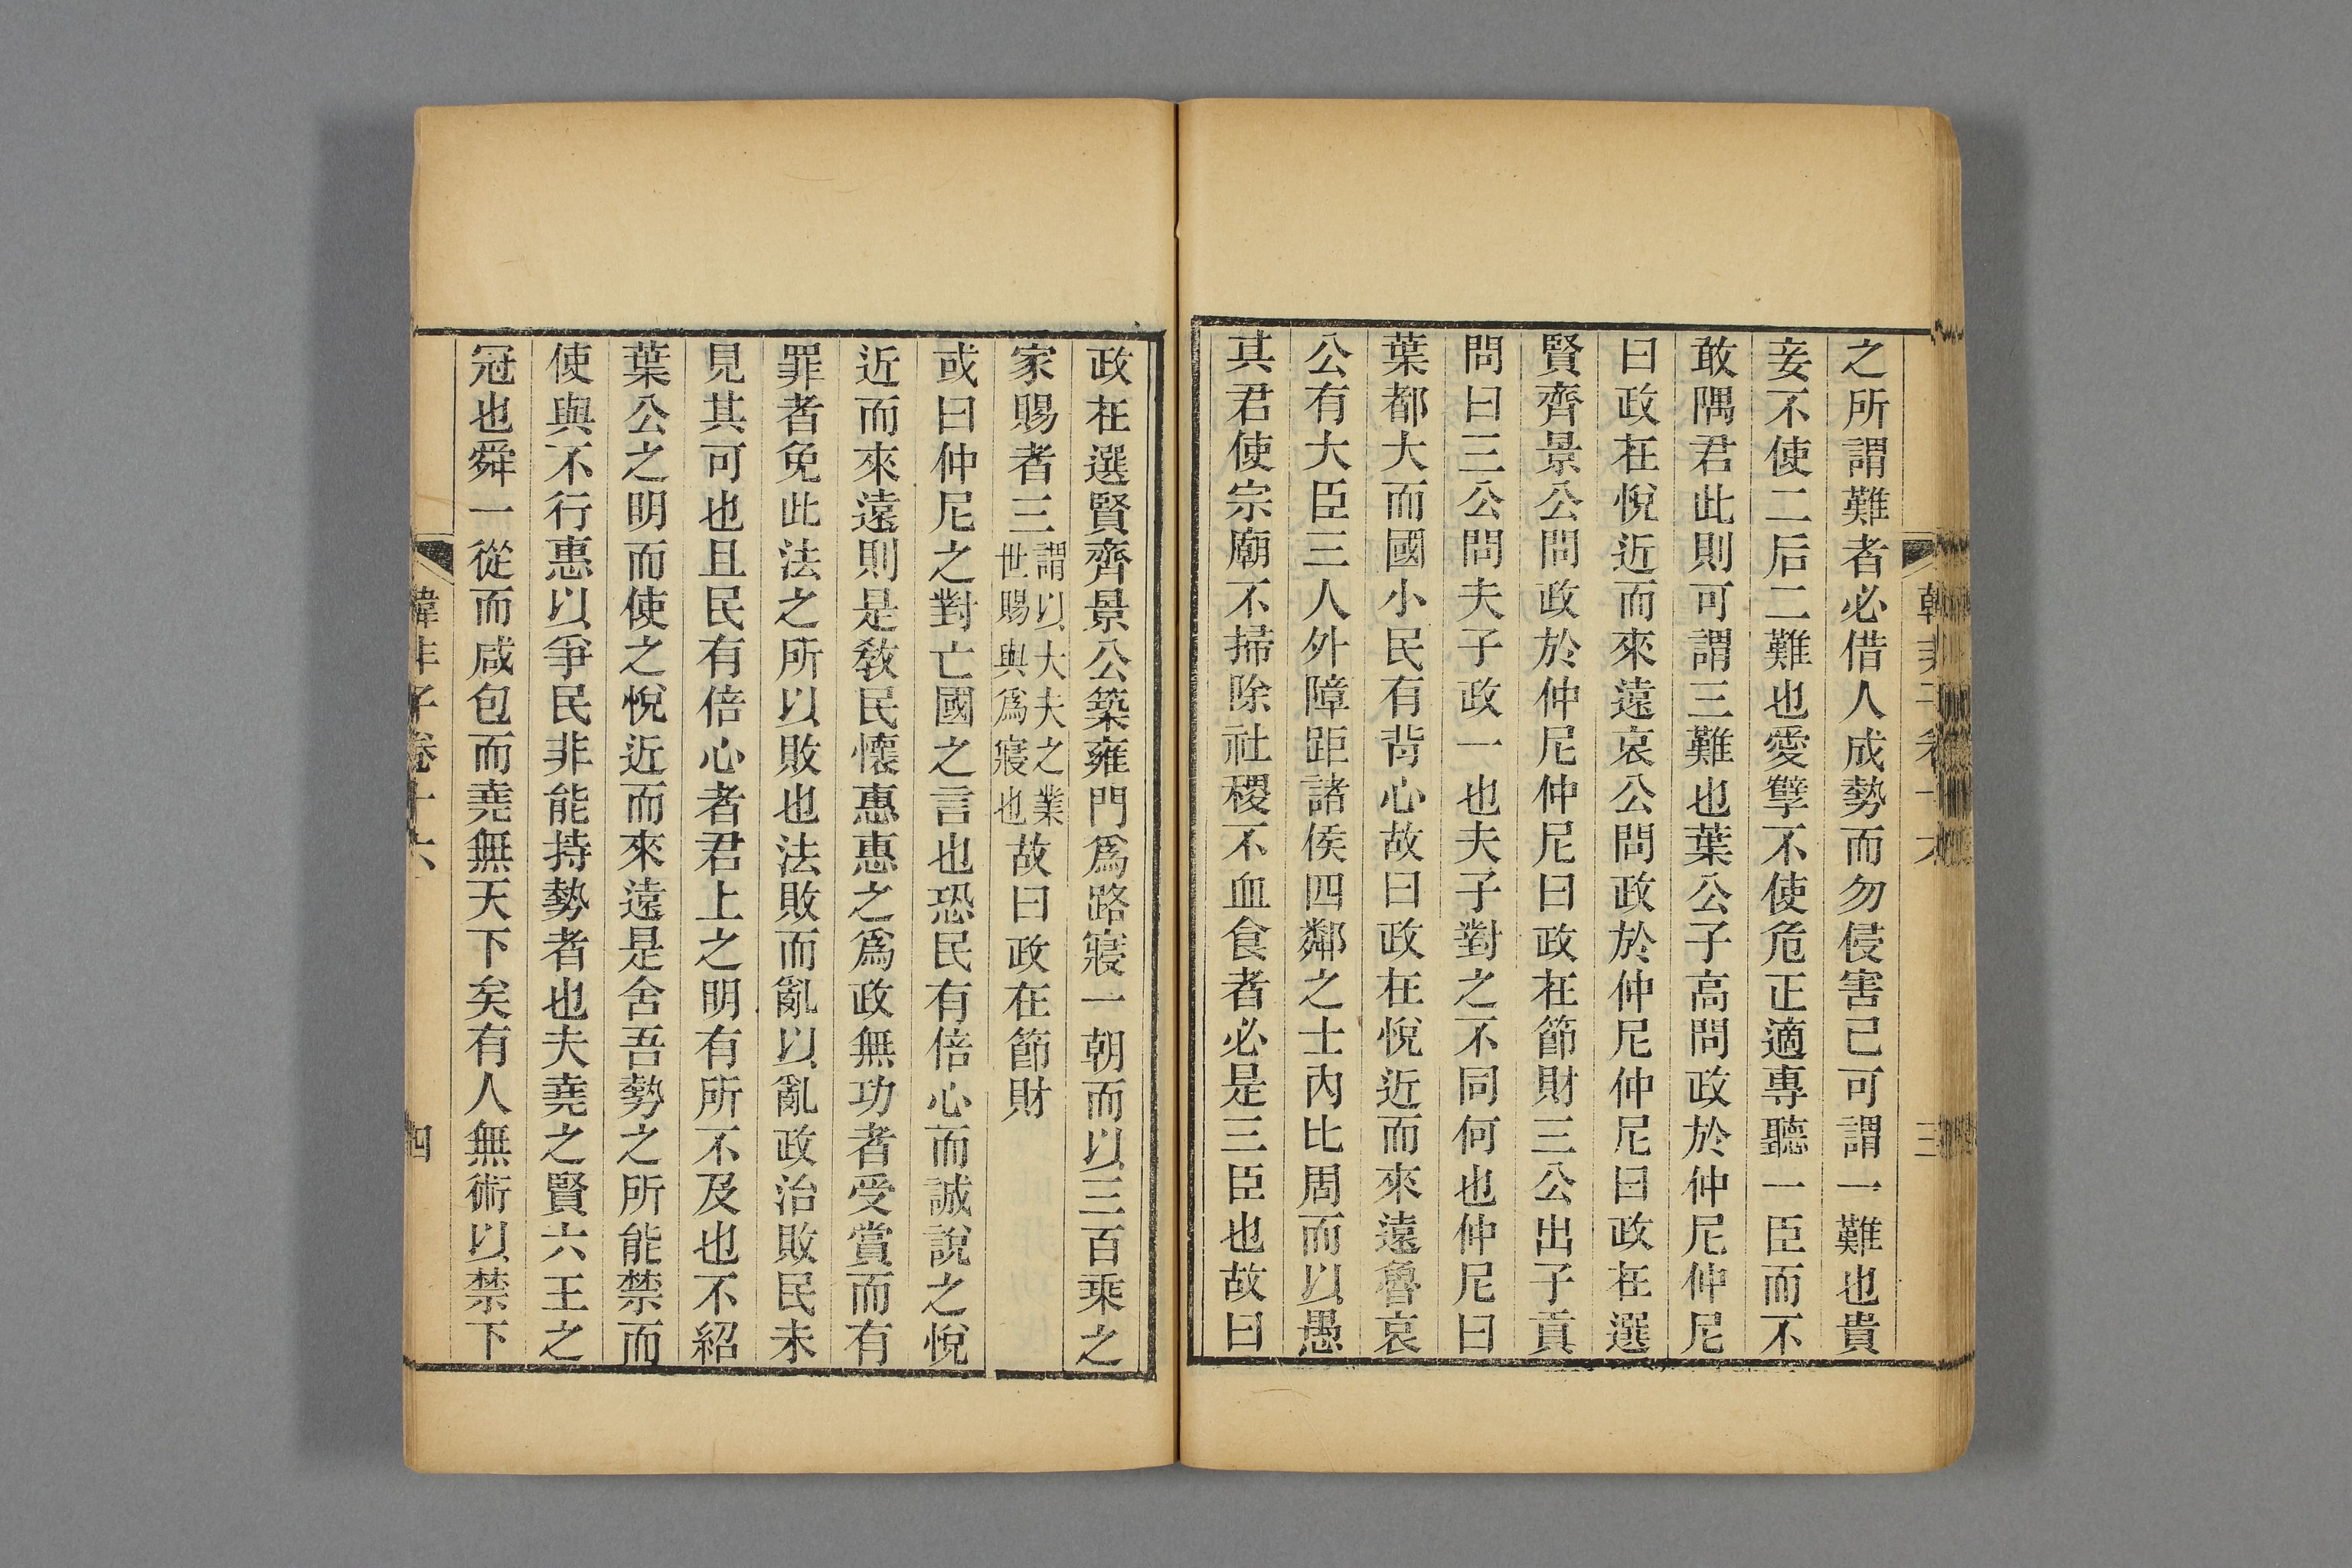 韓非子卷十六
三
之所謂難者必借人成勢而勿侵害己可謂一難也貴
妾不使二后二難也愛孼不使危正適專聽一臣而不
敢隅君此則可謂三難也葉公子高問政於仲尼仲尼
曰政在悅近而來遠哀公問政於仲尼仲尼曰政在選
賢齊景公問政於仲尼仲尼曰政在節財三公出子貢
問曰三公問夫子政一也夫子對之不同何也仲尼曰
葉都大而國小民有背心故曰政在悅近而來遠魯哀
公有大臣三人外障距諸侯四鄰之士內比周而以愚
其君使宗廟不掃除社稷不血食者必是三臣也故曰
政在選賢齊景公築雍門爲路寢一朝而以三百乘之
家賜者三謂以大夫之業世賜與爲寢也故曰政在節財
或曰仲尼之對亡國之言也恐民有倍心而誠說之悅
近而來遠則是敎民懷惠惠之爲政無功者受賞而有
罪者免此法之所以敗也法敗而亂以亂政治敗民未
見其可也且民有倍心者君上之明有所不及也不紹
葉公之明而使之悅近而來遠是舍吾勢之所能禁而
使與不行惠以爭民非能持勢者也夫堯之賢六王之
冠也舜一從而咸包而堯無天下矣有人無術以禁下
韓非子卷十六
四